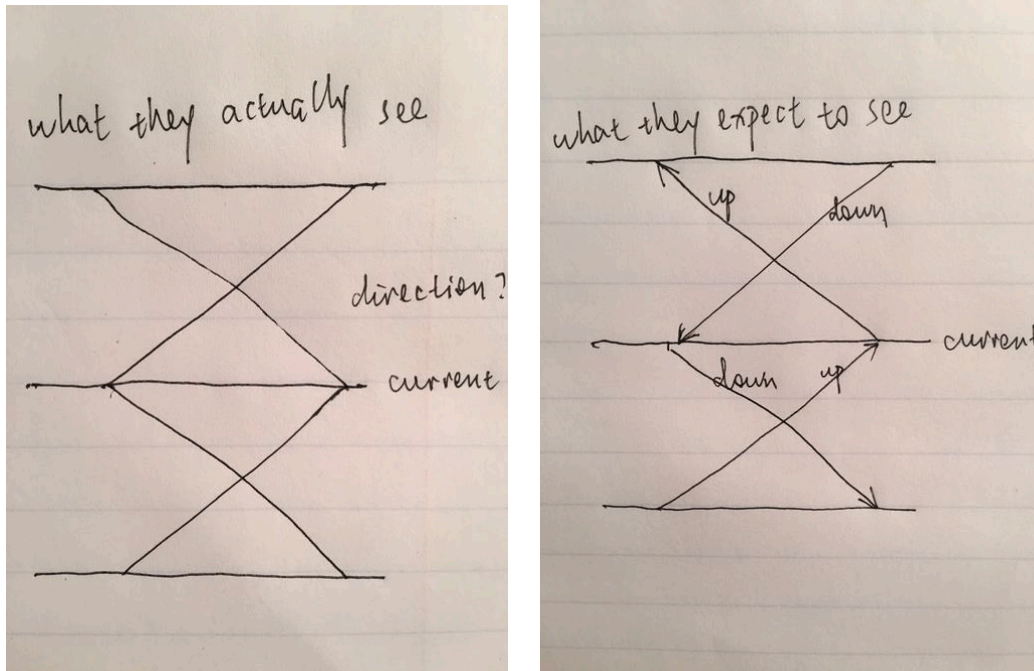 what they actually see
direction?
current
what they expect to see
up
down
current
down
up